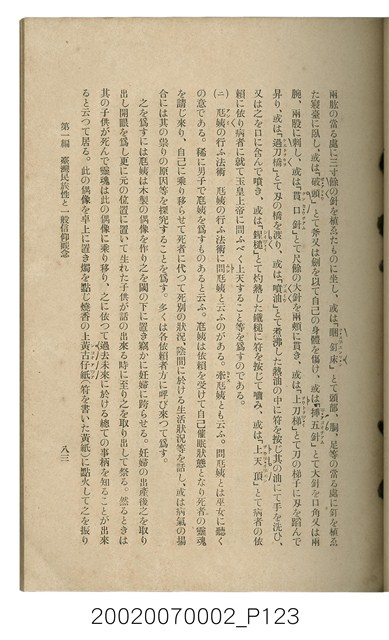 兩肱の當る處に三寸餘の針を植ゑたものに坐し、或は「睏釘床」とて頭部、胴、足等の當る處に釘を植ゑ
た寢臺に臥し、或は「破頭」とて斧又は劍を以て自己の身體を傷け、或は「揷五針」とて大針を口角又は兩
腕、兩股に刺し、或は「貫口針」とて尺餘の大針を兩頰に貫き、或は「上刀梯」とて刀の梯子に刄を踏んで
昇り、或は「過刀橋」とて刄の橋を渡り、或は「噴油」とて煮沸した熱油の中に符を按じ其の油にて手を洗ひ、
又は之を口に含んで噴き、或は「觀槌」とて灼熱した鐵槌に符を按じて嚙み、或は「上天頂」とて病者の依
賴に依り病者に就て玉皇上帝に問ふべく上天すること等を爲すのである。
(二) 尫姨の行ふ法術 尫姨の行ふ法術に問尫姨と云ふのがある。牽尫姨とも云ふ。問尫姨とは巫女に聽く
の意である。稀に男子で尫姨を爲すものあると云ふ。尫姨は依賴を受けて自己催眠狀態となり死者の靈魂
を請じ來り、自己に乘り移らせて死者に代つて死別の狀況、陰間に於ける生活狀況等を話し、或は病氣の場
合には其の祟りの原因等を探究することを爲す。多くは各依賴者方に呼び來つて爲す。
之を爲すには尫姨は木製の偶像を作り之を閾の下に置き竊かに妊婦に跨らせる。妊婦の出產後之を取り
出し開眼を爲し更に元の位置に置いて生れた子供が話の出來る時に至り之を取り出して祭る。然るときは
其の子供が死んで靈魂は此の偶像に乘り移り、之に依つて過去未來に於ける總ての事柄を知ることが出來
ると云つて居る。此の偶像を卓上に置き燭を點じ燒香の上黃古仔紙(符を書いた黃紙)に點火して之を振り
第一編 臺灣民族性と一般信仰觀念
八三
20020070002_P123